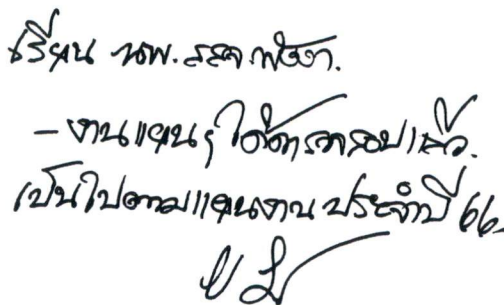 เรียน นพ.สสจ.พังงา.
- งานแผนฯ ได้ตรวจสอบแล้ว.
เป็นไปตามแผนงานประจำปี 66